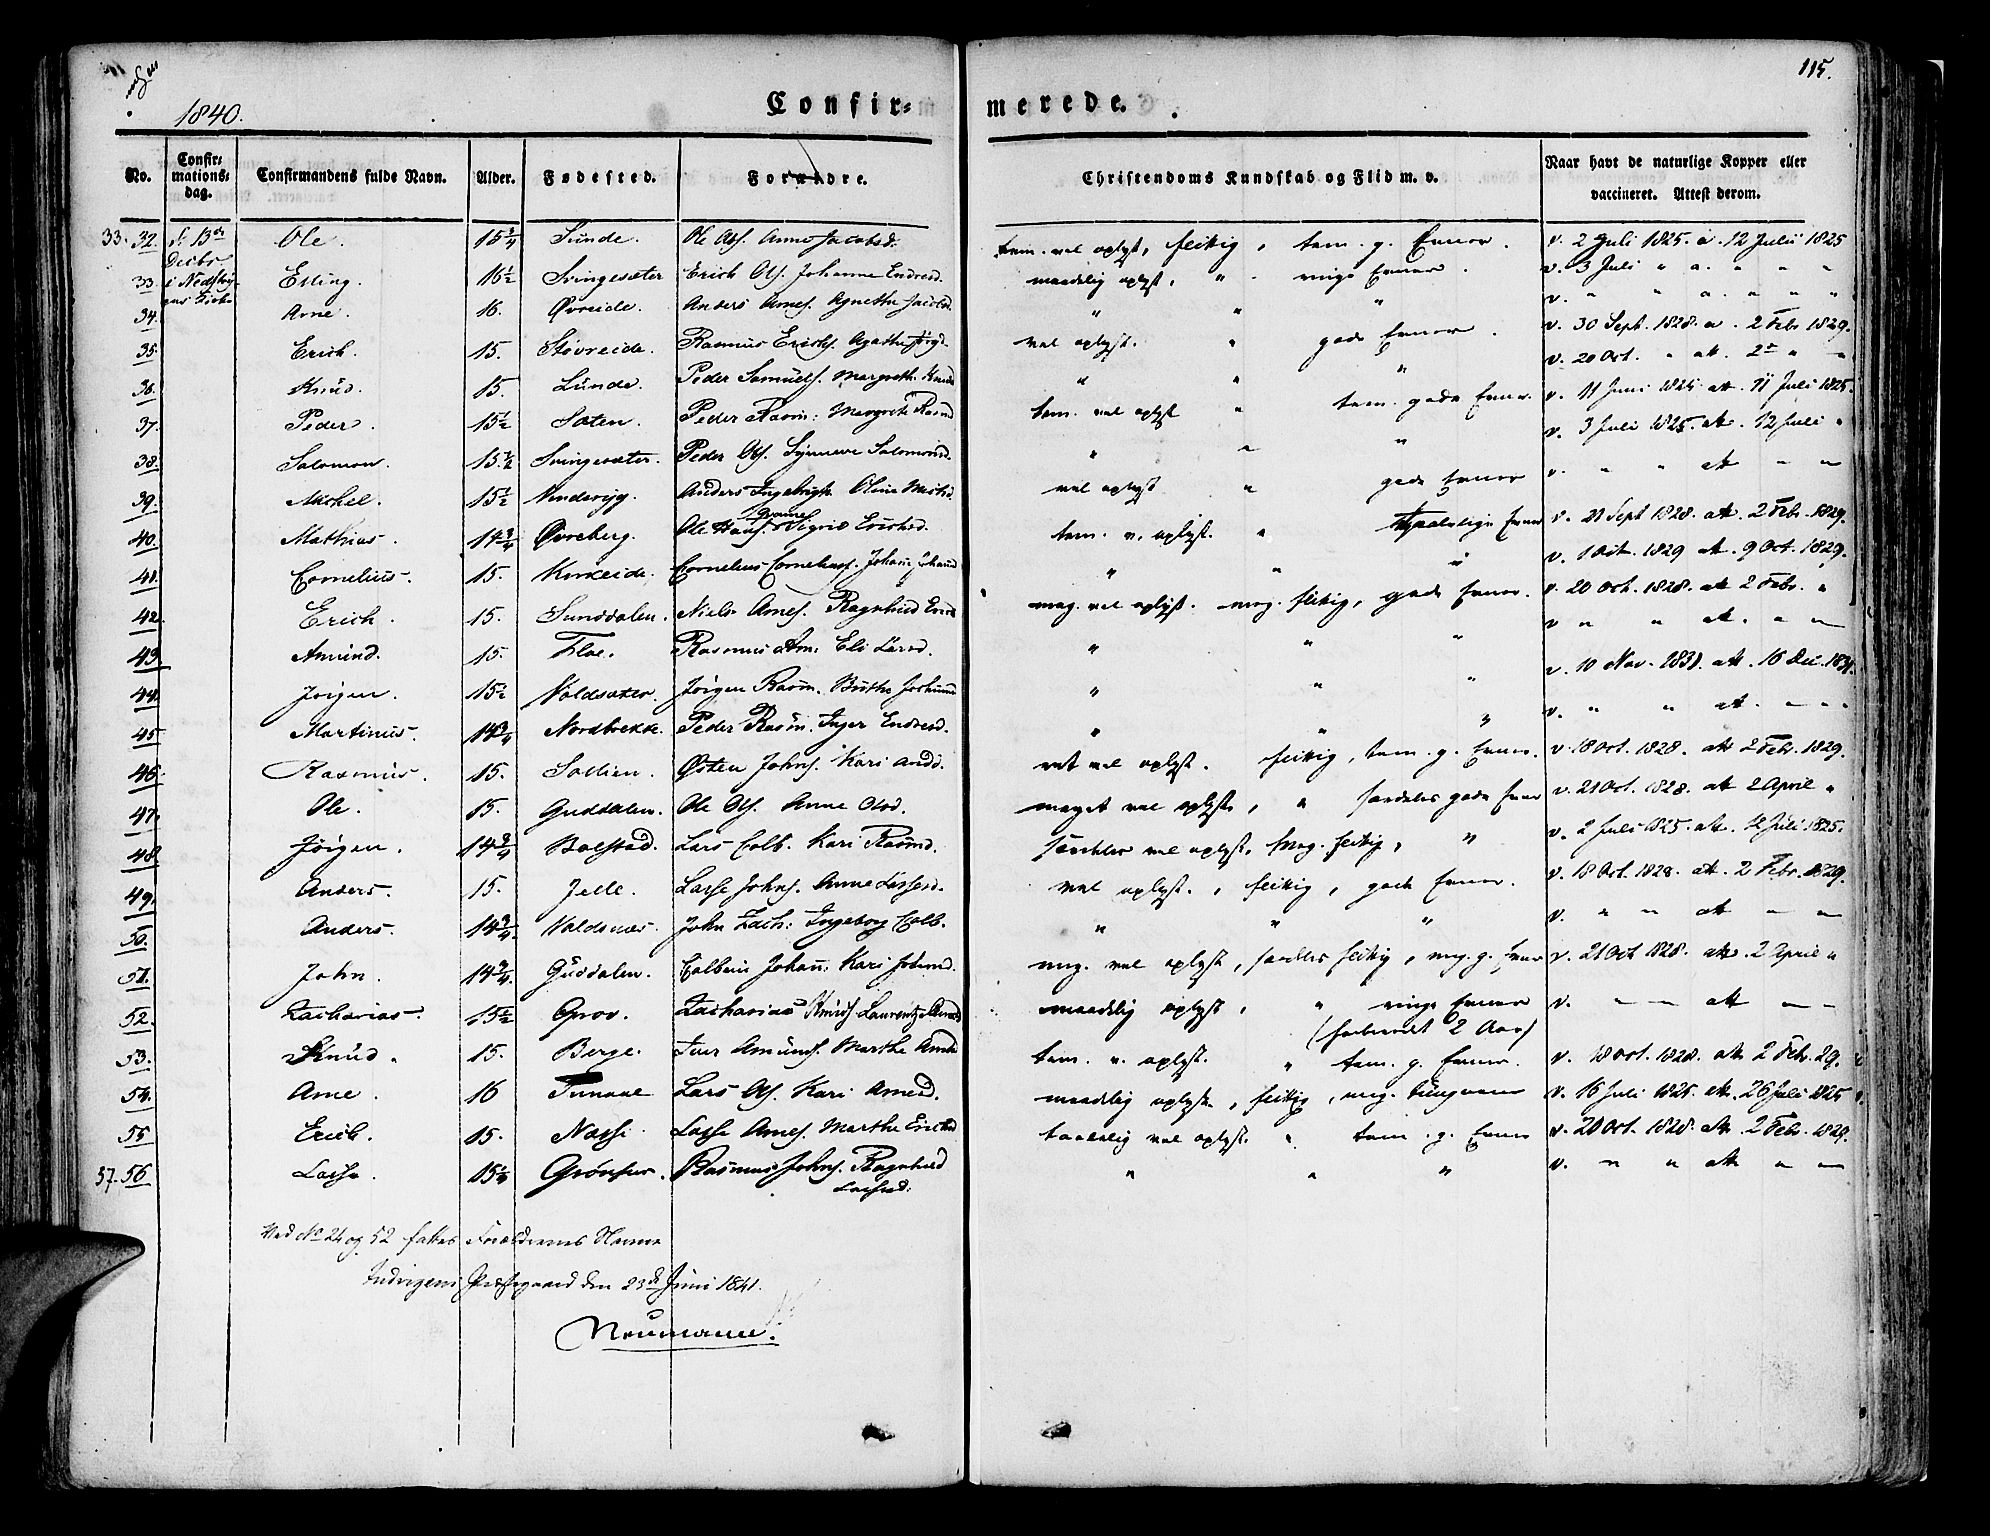 115.
1840.
Confir= merede.
No. Confir=mations=dag. Confirmandens fulde Navn. Alder. Fødested. Forældre. Christendoms Kundskab og Flid m. v. Naar havt de naturlige Kopper eller vaccineret. Attest derom.
33. 32. d. 13de Decbr Ole. 15 3/4 Sunde. Ole Ols. Anne Jacobsd. tem. vel oplyst, flittig, tem. g. Evner. v. 2 Juli 1825. a. 12 Julii 1825
33. Elling. 16 1/2 Svingesæter Erich Ols. Johanne Endresd. maadelig oplyst, " ringe Evner. v. 3 Juli " a. " " "
34. Arne. 16. Øvreide. Anders Arnes. Agnethe Jacobsd. " " " v. " " a. " " "
35. Erich. 15. Støvreide. Rasmus Erichs. Agathe vel oplyst. " gode Evner. v. 30 Sept. 1828. a. 2 Febr 1829.
36. Knud. 15. Lunde. Peder Samuels. Margrethe Knuds " " " v. 20 Oct. " att. 2 " "
37. Peder. 15 1/2 Sæten. Peder Rasm: Margrethe Rasmd tem. vel oplyst " tem. gode Evner. v. 11 Juni 1825 att. 11 Juli 1825.
38. Salomon. 15 1/2 Svingesæter. Peder Ols. Synneve Salomonsd. " " " v. 3 Juli 1825. att. 12 Juli "
39. Michel. 15 1/2 Anders Ingebrigts. Oline vel oplyst " gode Evner v. " " att " "
40. Mathias. 14 3/4 Øvreberg. Ole Hans. Sigrid Erichsd. tem. v. oplyst. " Evner v. 21 Sept 1828. att. 2 Febr. 1829.
41. Cornelius. 15. Kirkeide. Cornelius Cornelius. Johane Johansd " " " v. 1 Oct. 1829 att. 9 Oct. 1829.
42. Erich. 15. Sunddalen. Niels Arnes. Ragnhild meg. vel oplyst. meg. flittig, gode Evner. v. 20 Oct. 1828. att 2 Febr. "
43. Amund. 15. Floe. Rasmus Am: Eli Larsd. " " " v " " att. " "
44. Jörgen. 15 1/2 Voldsæter. Jörgen Rasm. Birthe " " " v. 10 Nov. 1831. att. 16 Dec. 1831.
45 Martinus. 14 3/4 Nordbrekke. Peder Rasm. Inger Endresd. " " " v. " " att. " "
46. Rasmus. 15. Østen Johns. Kari Andd. ret vel oplyst. flittig, tem. g. Evner. v. 18 Oct. 1828. att 2 Febr. 1829.
47. Ole. 15. Guddalen. Ole Ols. Anne Olsd. meget vel oplyst, " særdeles gode Evner v. 21 Oct. 1828. att 2 April "
48 Jörgen. 14 3/4 Bolstad. Lars Colb. Kari Rasmd. særdeles vel oplyst, meg. flittig, " v. 2 Juli 1825. att. 12 Juli 1825.
49. Anders. 15. Jelle. Lasse Johns. Anne Lassesd. vel oplyst., flittig, gode Evner. v. 18 Oct. 1828. att. 2 Febr. 1829.
50. Anders. 14 3/4. Voldsnæs. John Zach: Ingeborg Colb. " " " v. " " att " "
51. John. 14 3/4. Guddalen. Colbein Johan: Kari Johnsd. meg. vel oplyst, særdeles flittig, meg. g. Evner v. 21 Oct 1828. att. 2 April "
52. Zacharias. 15 1/2 Grov. Zacharias Knuds. maadelig oplyst, " ringe Evner (forberedet 2 Aar) v. " " att " "
53. Knud. 15. Berge. Iver Amunds. Marthe tem. v. oplyst. " tem. g. Evner. v. 18 Oct. 1828. att 2 Febr. 29.
54. Arne. 16 Lars Ols. Kari Arnesd. maadelig oplyst., flittig, meg. v. 16 Juli 1825 att. 26 Juli 1825
55 Erich. 15. Nosse. Lasse Arnes. Marthe Erichsd taalelig vel oplyst. " tem. g. Evner v. 20 Oct. 1828. att 2 Febr. 1829.
57. 56 Lasse. 15 1/4 Rasmus Johns. Ragnhild Lassesd. " " " v. " " att " "
Ved No 24 og 52 fattes Forældrenes Navne
Indvigens Præstegaard den 23de Juni 1841.
Neumann.